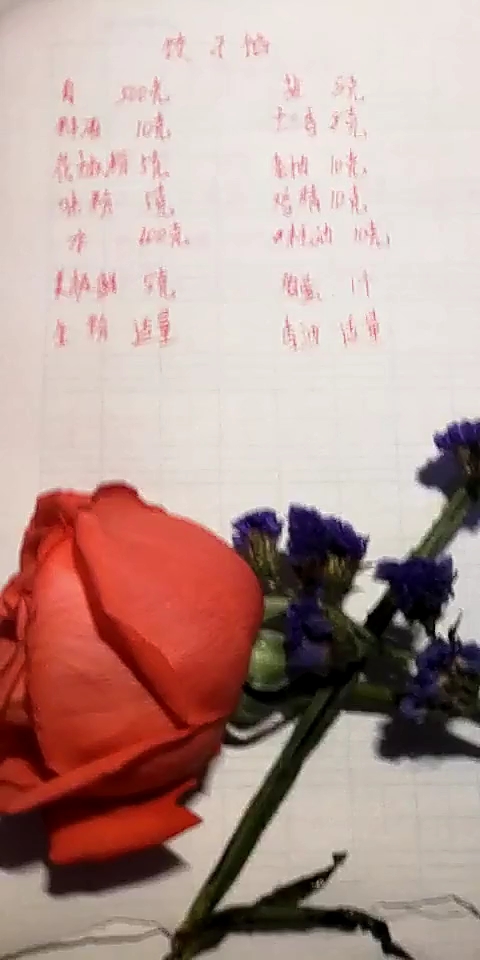 饺子馅
肉 500克, 盐 5克,
料酒 10克, 十三香 5克,
花椒粉 5克, 老抽 10克,
味精 5克, 鸡精 10克,
水 200克, 10克,
5克, 鸡蛋 1个
适量 香油 适量